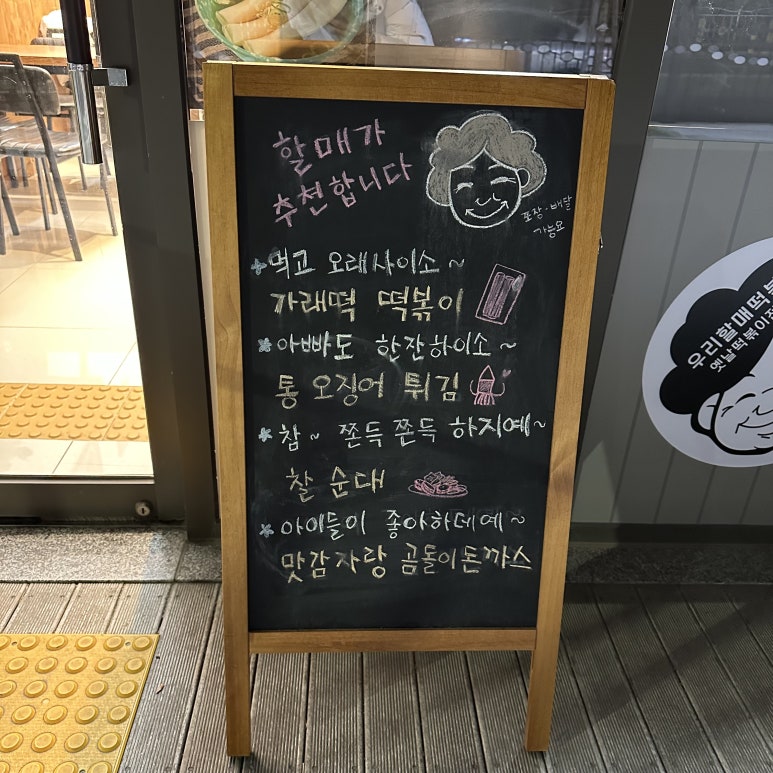 할매가
추천합니다
포장·배달
가능요
* 먹고 오래사이소~
가래떡 떡볶이
* 아빠도 한잔하이소~
통 오징어 튀김
* 참~ 쫀득쫀득 하지예~
찰 순대
* 아이들이 좋아하데예~
맛감자랑 곰돌이돈까스
우리할매떡볶
옛날떡볶이전